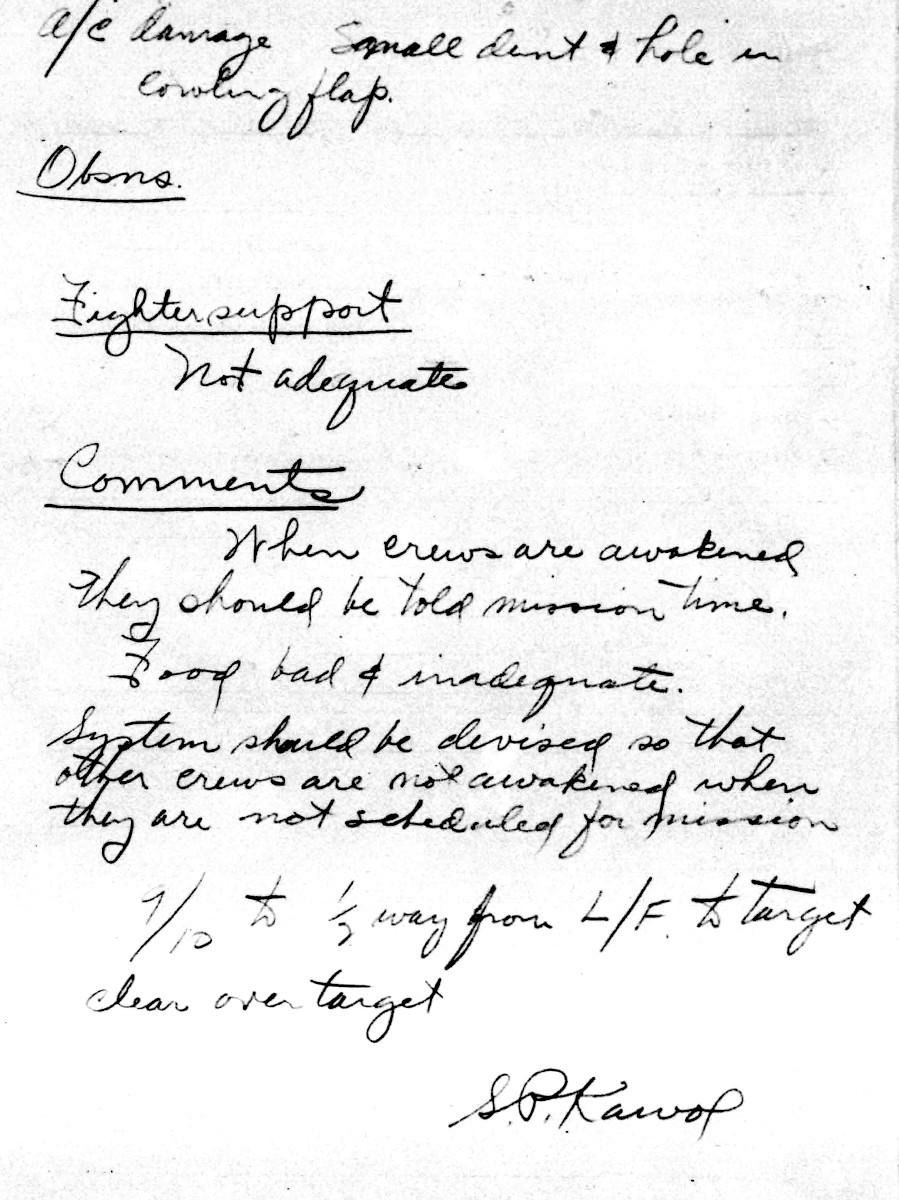 A/C damage Small dent & hole in
cowling flap.
Obsns.
Fighter support
Not adequate
Comments
When crews are awakened
they should be told mission time.
Food bad & inadequate.
System should be devised so that
other crews are not awakened when
they are not scheduled for mission
9/10 to 1/2 way from L/F. to target
clear over target
S.P.